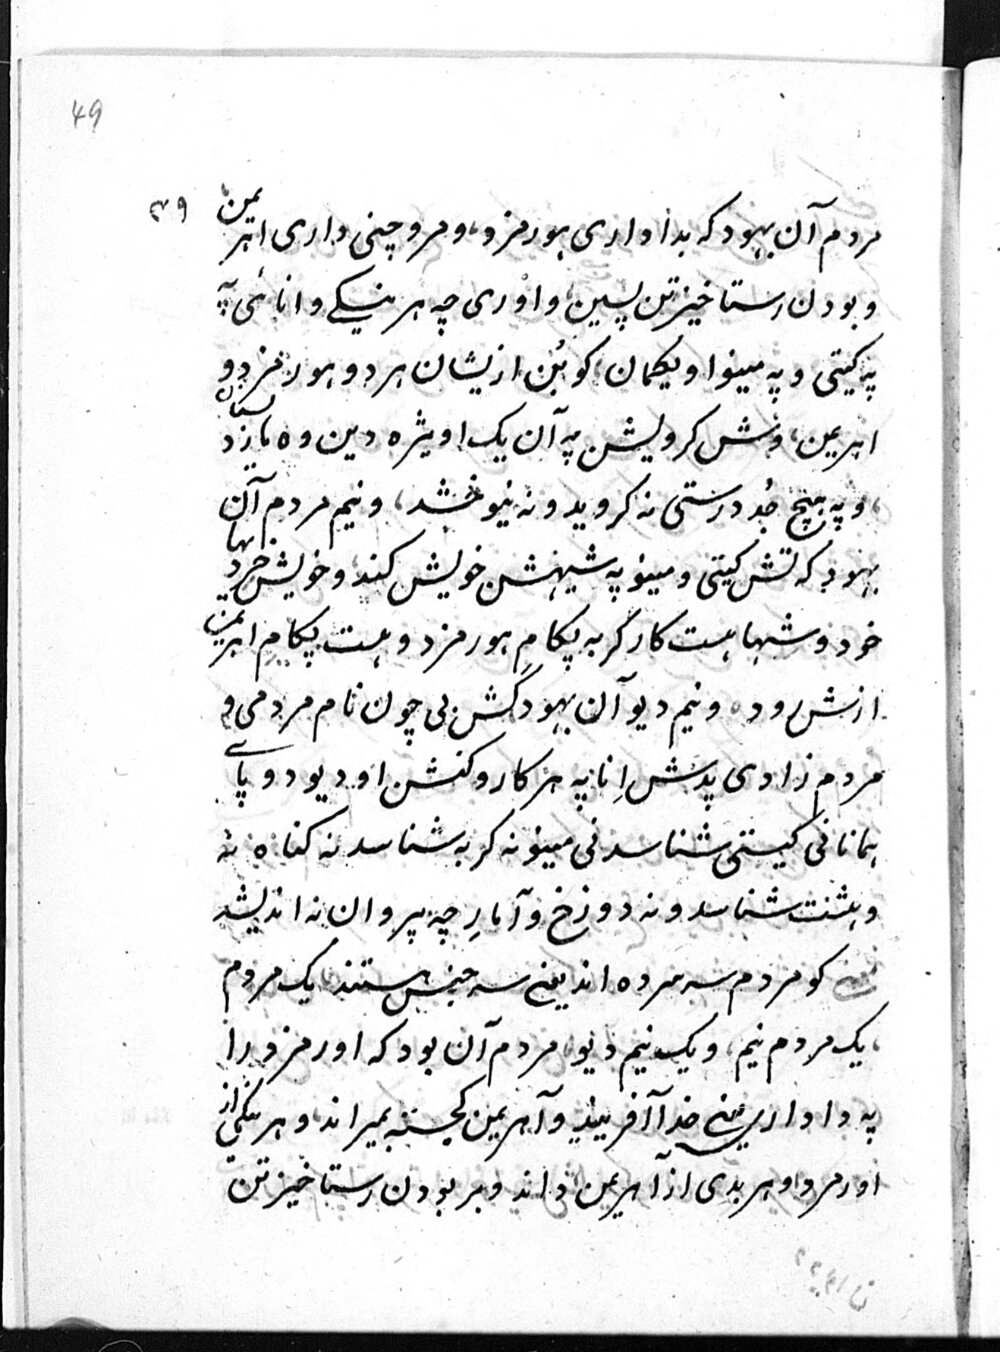 49
۳۹
مردم آن بهود که بداواری هورمزد، و مروچنی داری اهریمن
و بودن رستاخیز تن پسین، واوری چه هر نیکے وانائی په
په کیتی و په مینوا ویکمان، کو بُن ازیشان هر دو هورمزد و
اهریمن، وش کرویشن په آن یک اویژه دین وه مازدیسنان
، و په هیچ جُد درستی نه کروید و نه نیوخشد، و نیم مردم آن
بهود که تش کیتی و مینو په شیهشن خویش کند، و خویش خردیها
خود وشها هست کار کربه پکامِ هورمزد و هست پکامِ اهریمن
ازش رود ۰ و نیم دیو آن بهود کش بی چون نام مردمی و
مردم زادی پدش اِنا په هر کار و کنشن او دیو دو پاے
همانا نی کیتی شناسد نی مینو نه کربه شناسد نه کناه نه
وهشت شناسد و نه دوزخ و آمارِ چه پیروان نه اندیشد
یعنے کو مردم سه سرده اند یعنے سه جنس هستند یک مردم
، یک مردم نیم، و یک نیم دیو، مردم آن بود که اورمزد را
په داداری یعنے خدا آفریند و آهریمن کجسته بمیراند و هر نیکی از
اورمزد و هر بدی از آهریمن داند و بر بودن رستاخیز تن